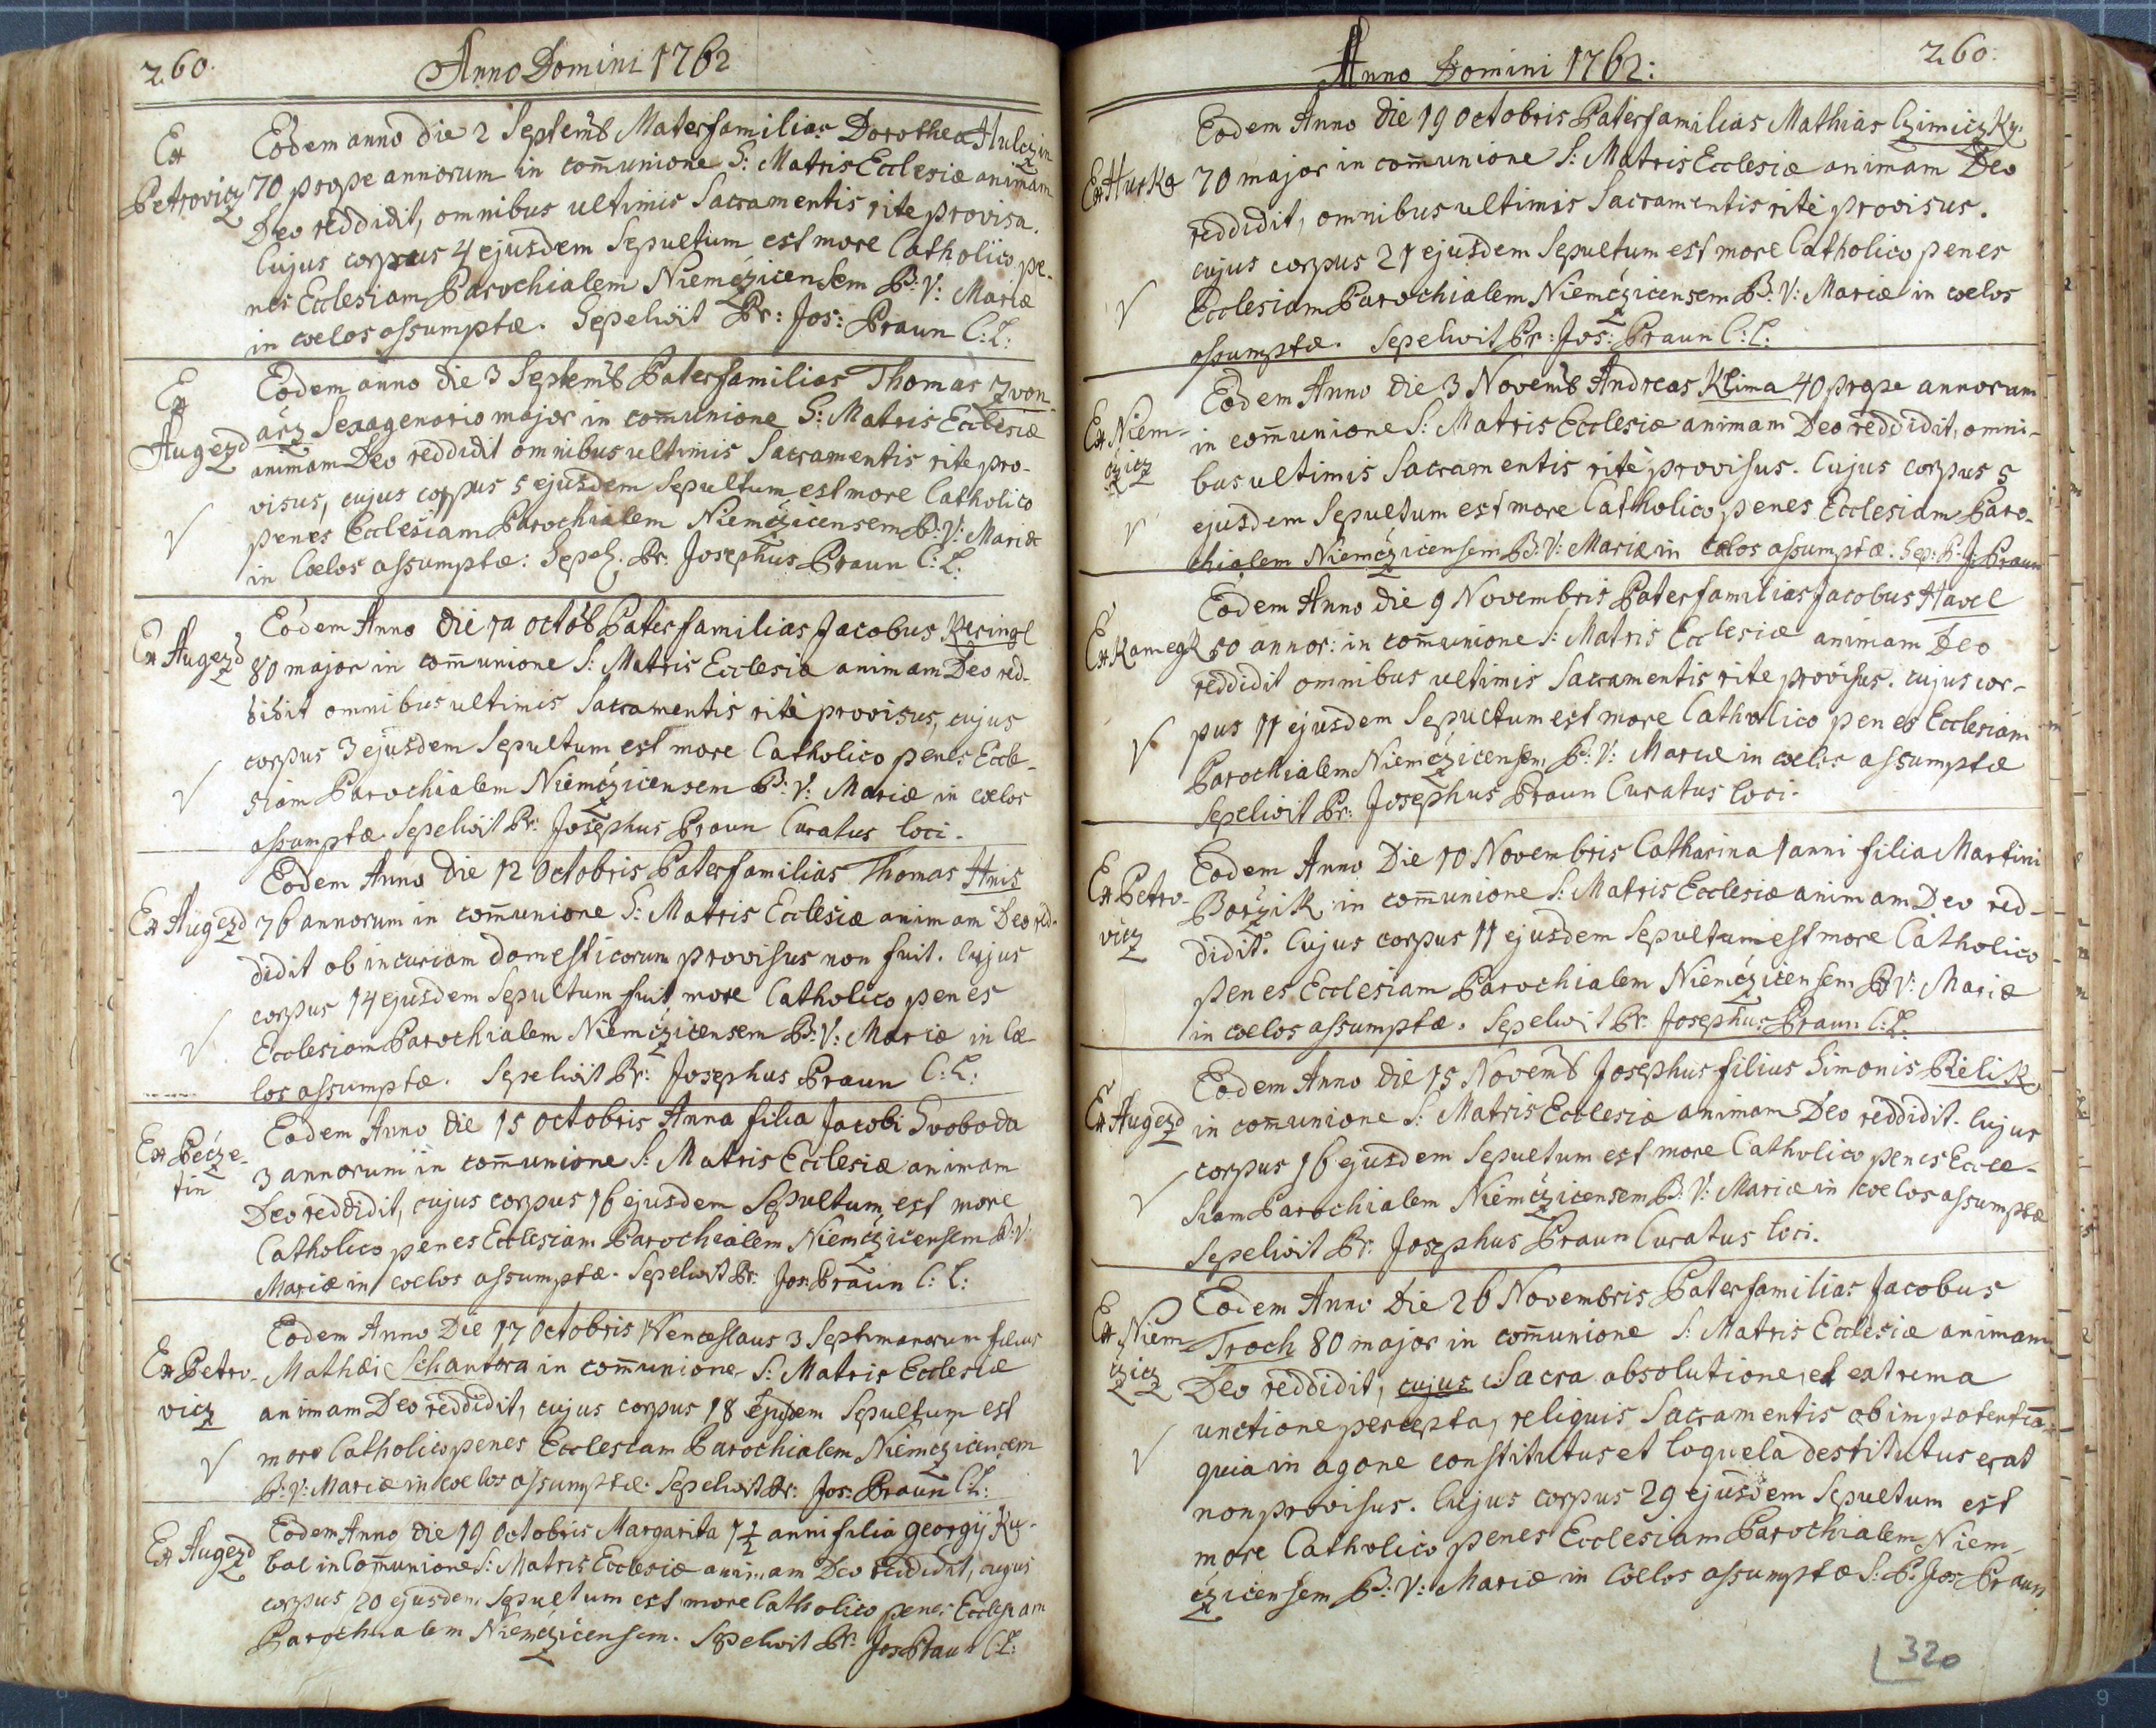 260.
Anno Domini 1762
Ex
Petrovicz
Eodem anno die 2 Septemb Materfamilias Dorothea Hulczin
70 prope annorum in com̄unione S: Matris Ecclesiæ animam
Deo reddidit, omnibus ultimis Sacramentis rite provisa.
Cujus corpus 4 ejusdem Sepultum est more Catholico pe-
nes Ecclesiam Parochialem Niemčzicensem B: V: Mariæ
in cœlos assumptæ. Sepelivit Pr: Jos: Praun C: L:
Ex
Augezd
Eodem anno die 3 Septemb Paterfamilias Thomas Zvon-
arz Sexagenario major in com̄unione S: Matris Ecclesiæ
animam Deo reddidit omnibus ultimis Sacramentis rite pro-
visus, cujus corpus 5 ejusdem Sepultum est more Catholico
penes Ecclesiam Parochialem Niemčzicensem B: V: Mariæ
in Cœlos assumptæ: Sepel. Pr. Josephus Praun C: L:
Ex Augezd
Eodem Anno die 1a octob Paterfamilias Jacobus
80 major in com̄unione S: Matris Ecclesiæ animam Deo red-
didit omnibus ultimis Sacramentis rite provisus, cujus
corpus 3 ejusdem Sepultum est more Catholico penes Eccle-
siam Parochialem Niemčzicensem B: V: Mariæ in cœlos
assumptæ Sepelivit Pr: Josephus Praun Curatus loci.
Ex Augezd
Eodem Anno die 12 Octobris Paterfamilias Thomas Hnis
76 annorum in com̄unione S: Matris Ecclesiæ animam Deo red-
didit ob incuriam domesticorum provisus non fuit. Cujus
corpus 14 ejusdem Sepultum fuit more Catholico penes
Ecclesiam Parochialem Niemčzicensem B: V: Mariæ in Cœ
los assumptæ. Sepelivit Pr: Josephus Praun C: L:
Ex Pečze-
tin
Eodem Anno die 15 octobris Anna filia Jacobi Svoboda
3 annorum in com̄unione S: Matris Ecclesiæ animam
Deo reddidit, cujus corpus 16 ejusdem Sepultum est more
Catholico penes Ecclesiam Parochialem Niemčzicensem B: V:
Mariæ in cœlos assumptæ. Sepelivit Pr: Jos: Praun C: L:
Ex Petro-
vicz
Eodem Anno Die 17 Octobris Wenceslaus 3 Septimanarum filius
Mathæi Schantora in com̄unione S: Matris Ecclesiæ
animam Deo reddidit, cujus corpus 18 ejusdem Sepultum est
more Catholico penes Ecclesiam Parochialem Niemczicensem
B: V: Mariæ in cœlos assumptæ. Sepelivit Pr: Jos: Praun C: L:
Ex Augezd
Eodem Anno die 19 Octobris Margarita 1½ anni filia Georgij Ku-
bal in Com̄unione S: Matris Ecclesiæ animam Deo reddidit, cujus
corpus 20 ejusdem Sepultum est more Catholico penes Ecclesiam
Parochialem Niemčzicensem. Sepelivit Pr: Jos Praun C: L:
260.
Anno Domini 1762:
Ex Hurka
Eodem Anno die 19 Octobris Paterfamilias Mathias Czimiczky
70 major in com̄unione S: Matris Ecclesiæ animam Deo
reddidit, omnibus ultimis Sacramentis rite provisus.
cujus corpus 21 ejusdem Sepultum est more Catholico penes
Ecclesiam Parochialem Niemčzicensem B: V: Mariæ in cœlos
assumptæ. Sepelivit Pr: Jos: Praun C: L:
Ex Niem-
czicz
Eodem Anno die 3 Novemb Andreas Klima 40 prope annorum
in com̄unione S: Matris Ecclesiæ animam Deo reddidit, omni-
bus ultimis Sacramentis rite provisus. Cujus corpus 5
ejusdem Sepultum est more Catholico penes Ecclesiam Paro-
chialem Niemčzicensem B: V: Mariæ in Cœlos assumptæ. Sep: P: J: Praun
Ex Kamegk
Eodem Anno die 9 Novembris Paterfamilias Jacobus Havel
50 annor: in com̄unione S: Matris Ecclesiæ animam Deo
reddidit omnibus ultimis Sacramentis rite provisus. cujus cor-
pus 11 ejusdem Sepultum est more Catholico penes Ecclesiam
Parochialem Niemčzicensem B: V: Mariæ in cœlos assumptæ
Sepelivit Pr: Josephus Praun Curatus loci.
Ex Petro-
vicz
Eodem Anno Die 10 Novembris Catharina 1 anni filia Martini
Borzik in com̄unione S: Matris Ecclesiæ animam Deo red-
didit. Cujus corpus 11 ejusdem Sepultum est more Catholico
penes Ecclesiam Parochialem Niemčzicensem B: V: Mariæ
in cœlos assumptæ. Sepelivit Pr: Josephus Praun C: L:
Ex Augezd
Eodem Anno die 15 Novemb Josephus filius Simonis Bielik
in com̄unione S: Matris Ecclesiæ animam Deo reddidit. Cujus
corpus 16 ejusdem Sepultum est more Catholico penes Eccle-
siam Parochialem Niemčzicensem B: V: Mariæ in cœlos assumptæ
Sepelivit Pr: Josephus Praun Curatus loci.
Ex Niem-
czicz
Eodem Anno Die 26 Novembris Paterfamilias Jacobus
Troch 80 major in com̄unione S: Matris Ecclesiæ animam
Deo reddidit, cujus Sacra absolutione, et extrema
unctione percepta, reliquis Sacramentis ob impotentiā
quia in agone constitutus et loquela destitutus erat
non provisus. Cujus corpus 29 ejusdem Sepultum est
more Catholico penes Ecclesiam Parochialem Niem-
czicensem B: V: Mariæ in Cœlos assumptæ S: P: Jos: Praun
320